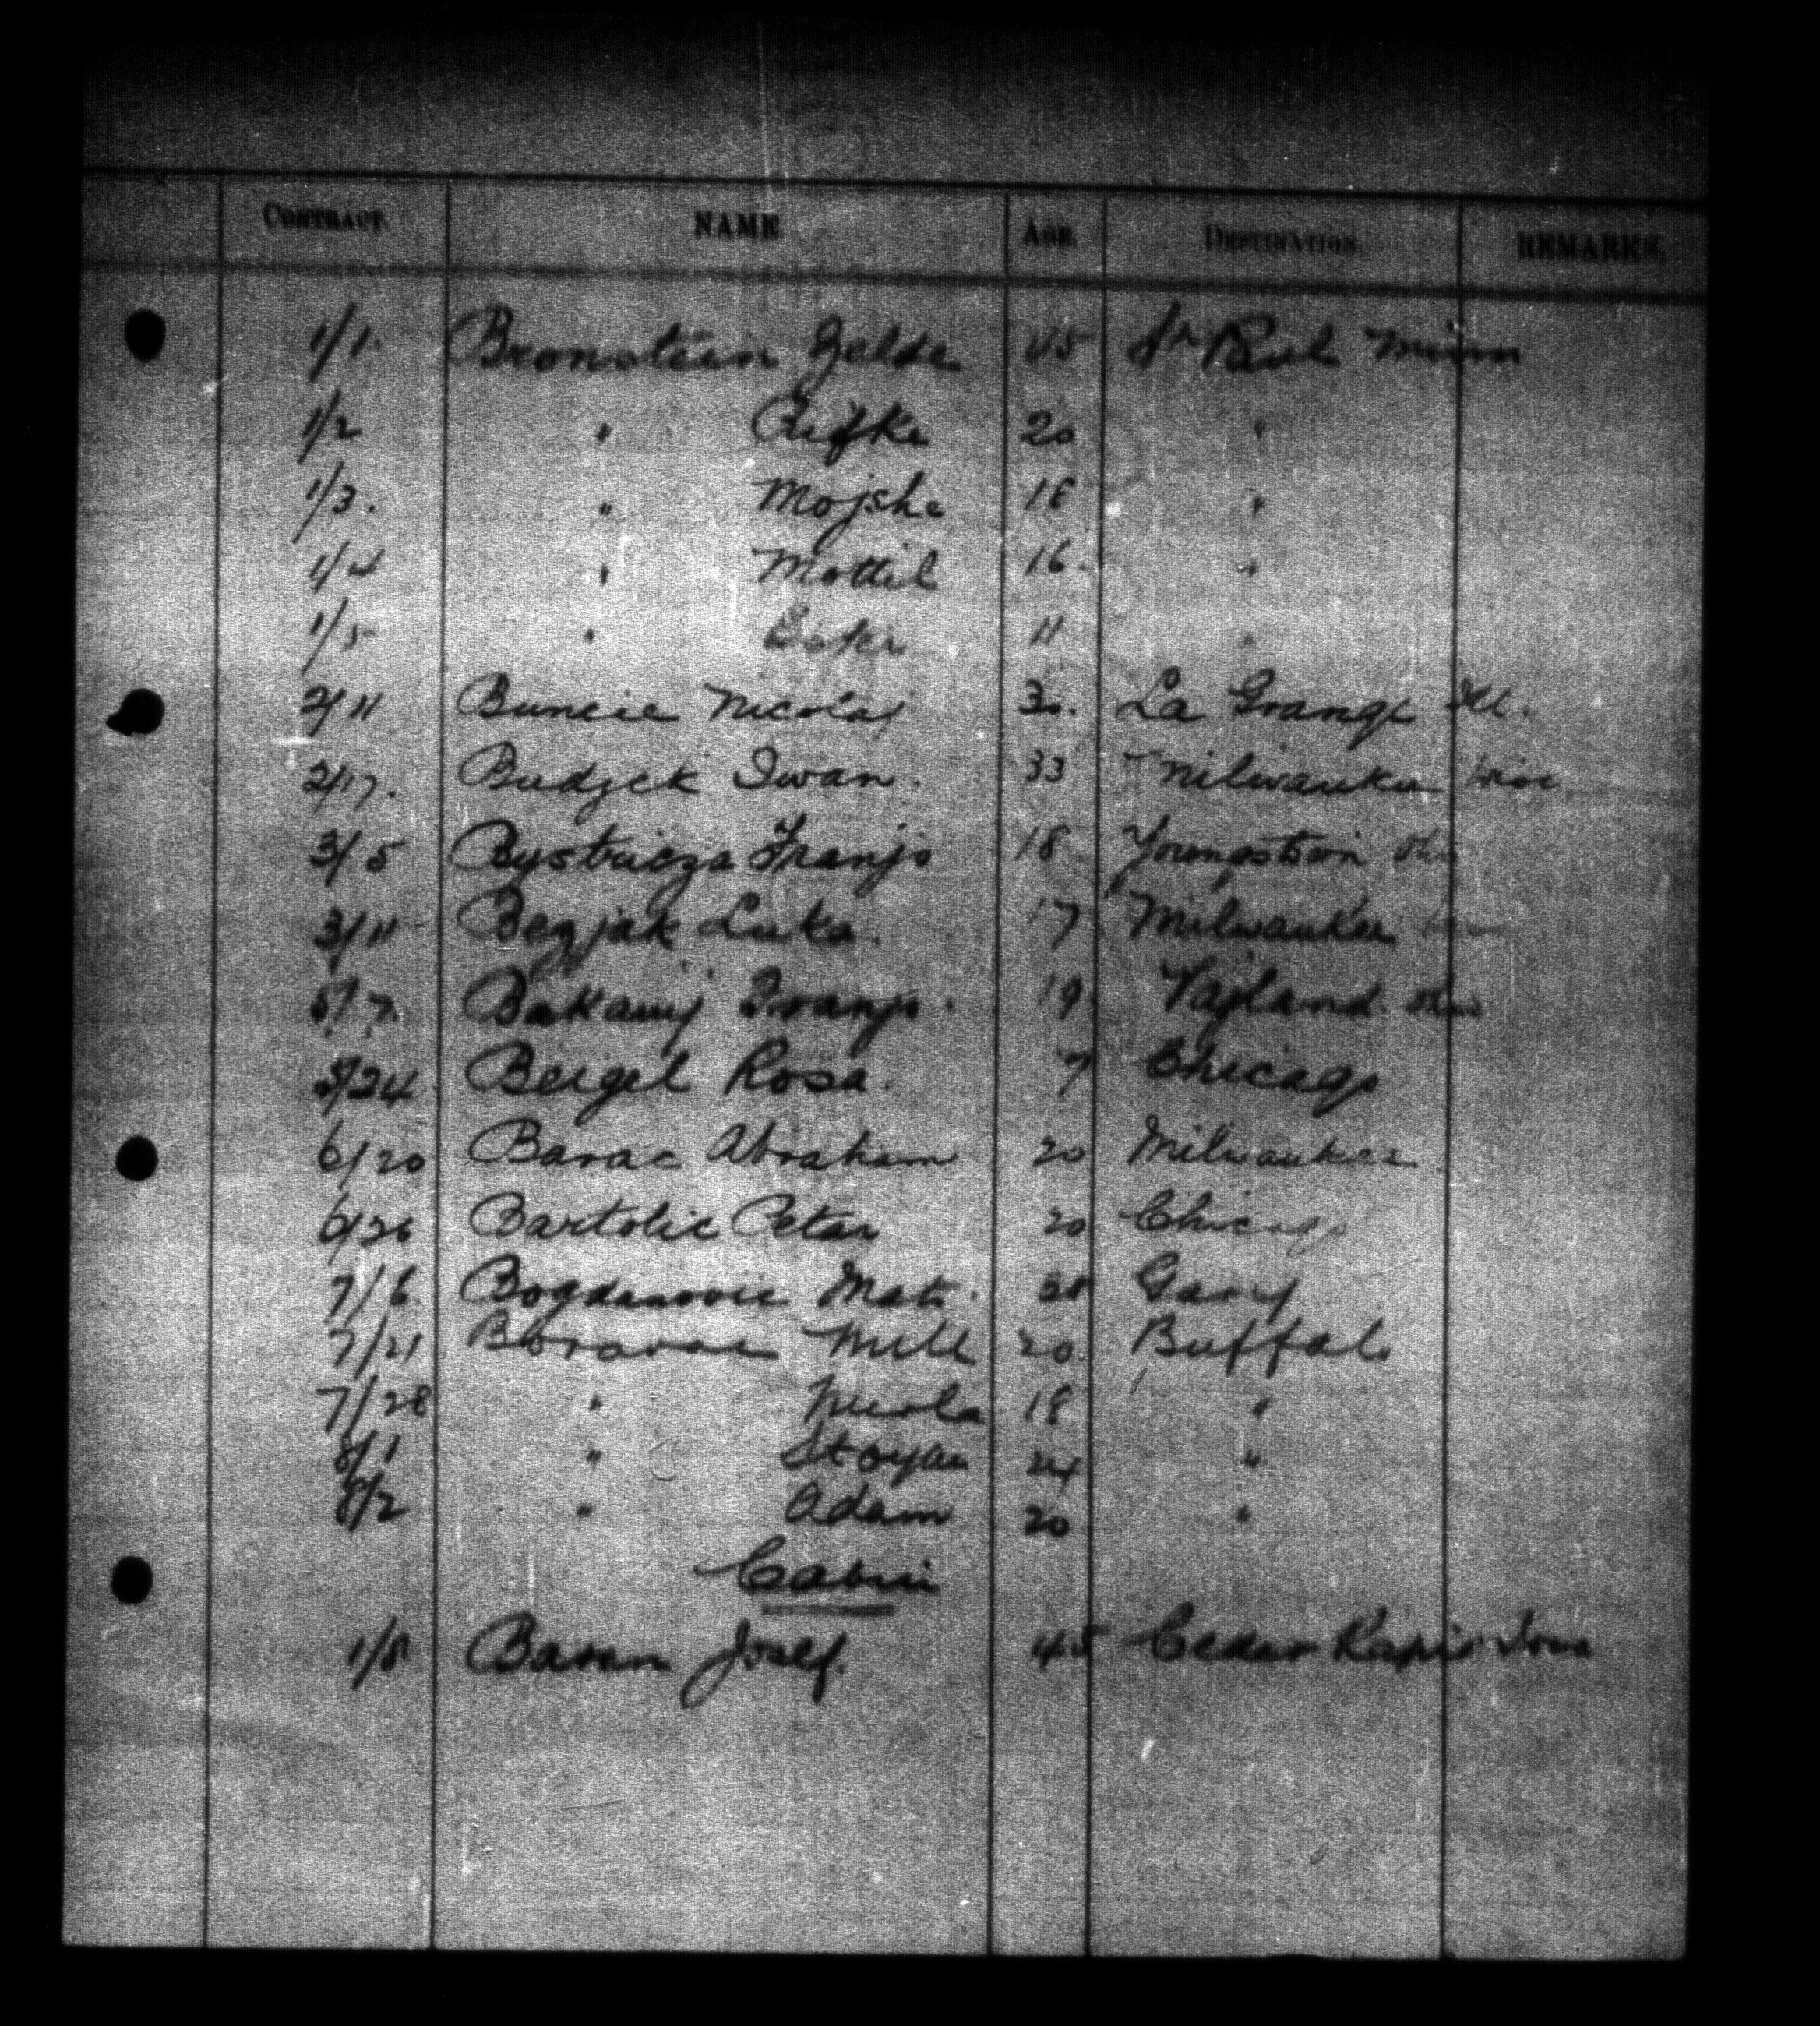 CONTRACT. NAME AGE. DESTINATION. REMARKS.
1/1. Bronstein Zelde 45 St Paul Minn
1/2 " Rifke 20 "
1/3. " Mojshe 18 "
1/4 " Mottel 16 "
1/5 " 11 "
2/11 Buncic Nicolaj 30. La Grange Ill.
2/17. Budzek Iwan. 33 Milwaukee Wisc
3/5 Bystricza Franjo 18 Youngstown Ohio
3/11 Bezjak Luka. 17 Milwaukee
5/7. Franjo. 19
5/24 Beigel Rosa. 7 Chicago
6/20 Barac Abraham 20 Milwaukee.
6/26 Bartolic Petar 20 Chicago
7/6 Bogdanovic Mato. 38 Gary
7/21 Mile 20. Buffalo
7/28 " Nicola 18 "
8/1 " Stoyan 24 "
8/2 " Adam 20 "
Cabin
1/8 Baron Josef. 45 Cedar Rapids Iowa